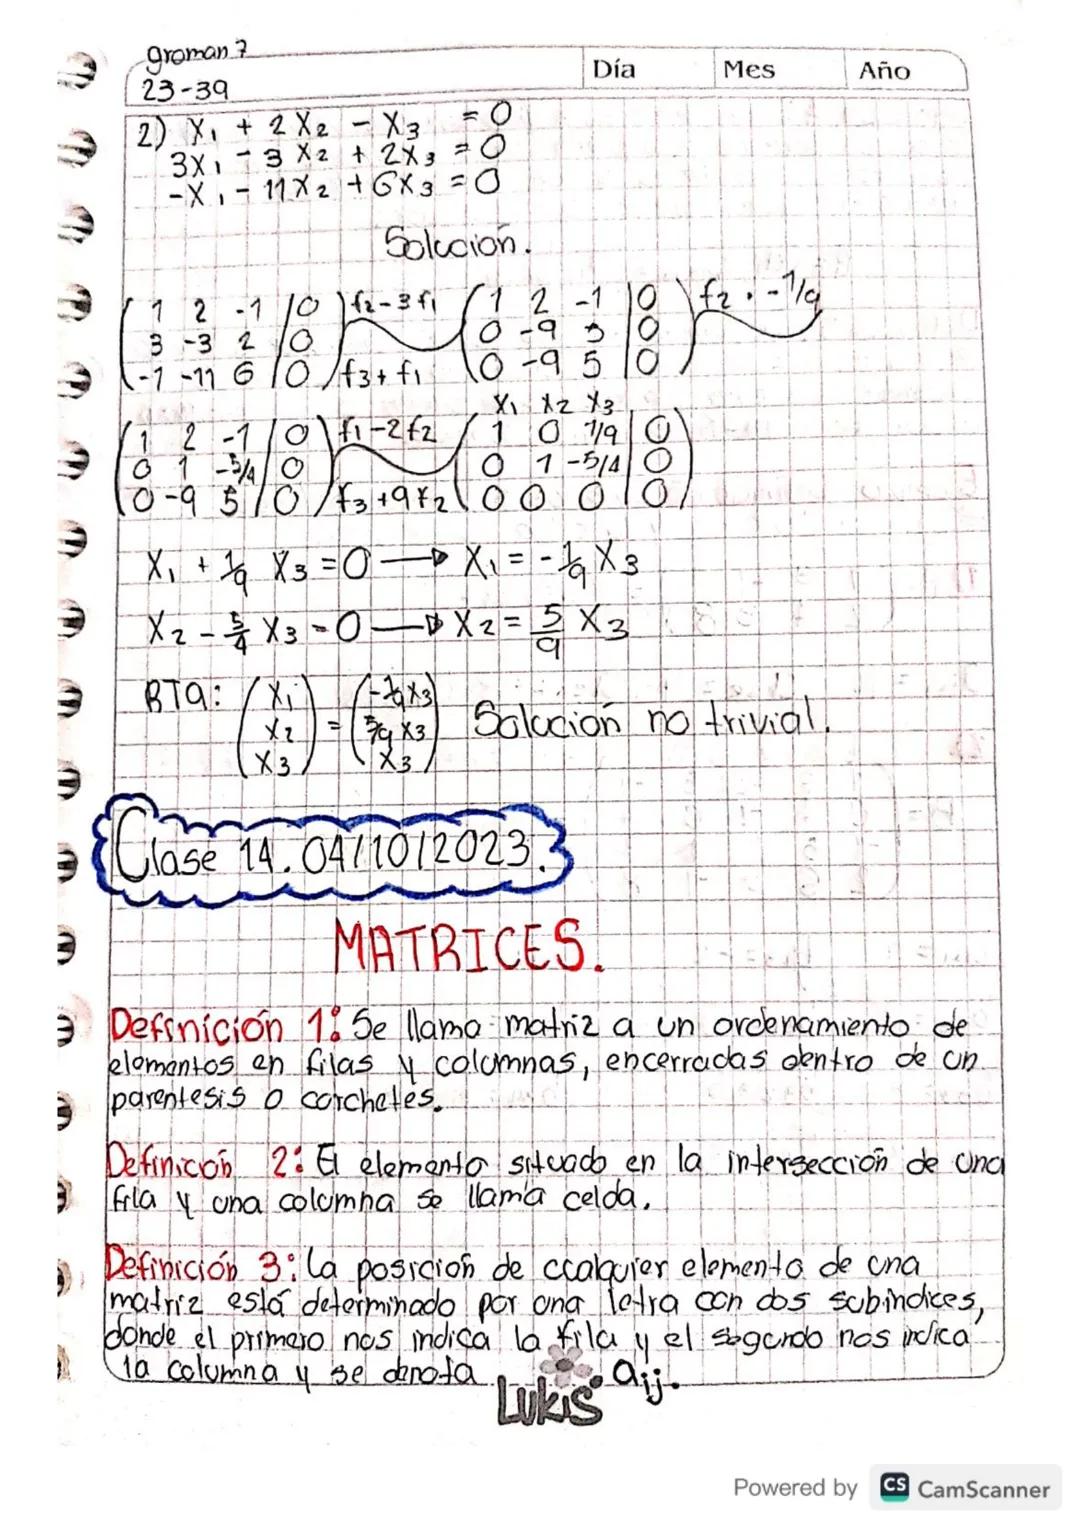 groman 7
23-39
Día Mes Año
2) X₁ + 2X₂ - X₃ = 0
3X₁ - 3X₂ + 2X₃ = 0
-X₁ - 11X₂ + 6X₃ = 0
Solución.
( 1 2 -1 | 0 ) f₂-3f₁ ( 1 2 -1 | 0 ) f₂ · -1/9
3 -3 2 | 0 0 -9 5 | 0
-1 -11 6 | 0 f₃+f₁ 0 -9 5 | 0
X₁ X₂ X₃
( 1 2 -1 | 0 ) f₁-2f₂ ( 1 0 1/9 | 0 )
0 1 -5/9 | 0 0 1 -5/9 | 0
0 -9 5 | 0 f₃+9f₂ 0 0 0 | 0
X₁ + 1/9 X₃ = 0 → X₁ = -1/9 X₃
X₂ - 5/9 X₃ = 0 → X₂ = 5/9 X₃
RTA: ( X₁ ) = ( -1/9 X₃ ) Solución no trivial.
X₂ 5/9 X₃
X₃ X₃
Clase 14. 04/10/2023.
MATRICES.
Definición 1: Se llama matriz a un ordenamiento de
elementos en filas y columnas, encerradas dentro de un
parentesis o corchetes.
Definición 2: El elemento situado en la intersección de una
fila y una columna se llama celda.
Definición 3: La posición de cualquier elemento de una
matriz está determinado por una letra con dos subindices,
donde el primero nos indica la fila y el segundo nos indica
la columna y se denota aij.
LUKIS
Powered by CS CamScanner